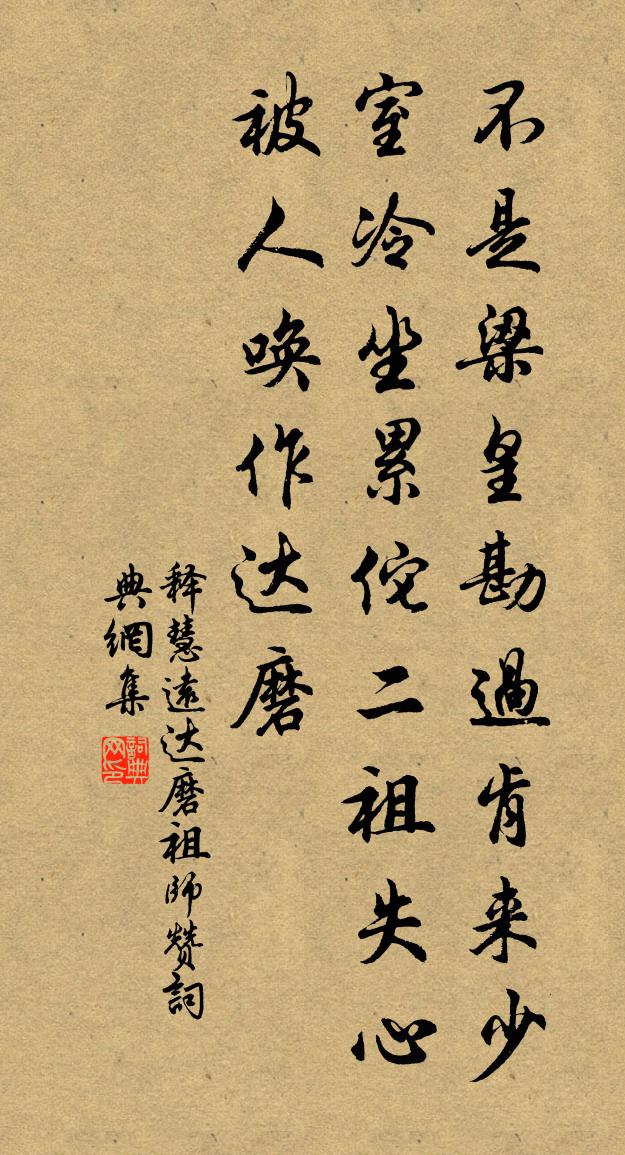 不是梁皇勘過肯来少
室冷坐累侘二祖失心
被人唤作达磨
释慧遠达磨祖師赞詞
典網集
詞典网印